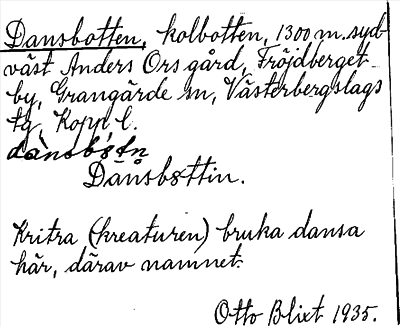 Dansbotten, kolbotten, 1300 m. syd-
väst Anders Ors gård, Fröjdberget
by, Grangärde sn, Västerbergslags
tg, Kopp. l.
dànsbȯ́tn
Dånsbȯttin.
Kritra (kreaturen) bruka dansa
här, därav namnet.
Otto Blixt 1935.